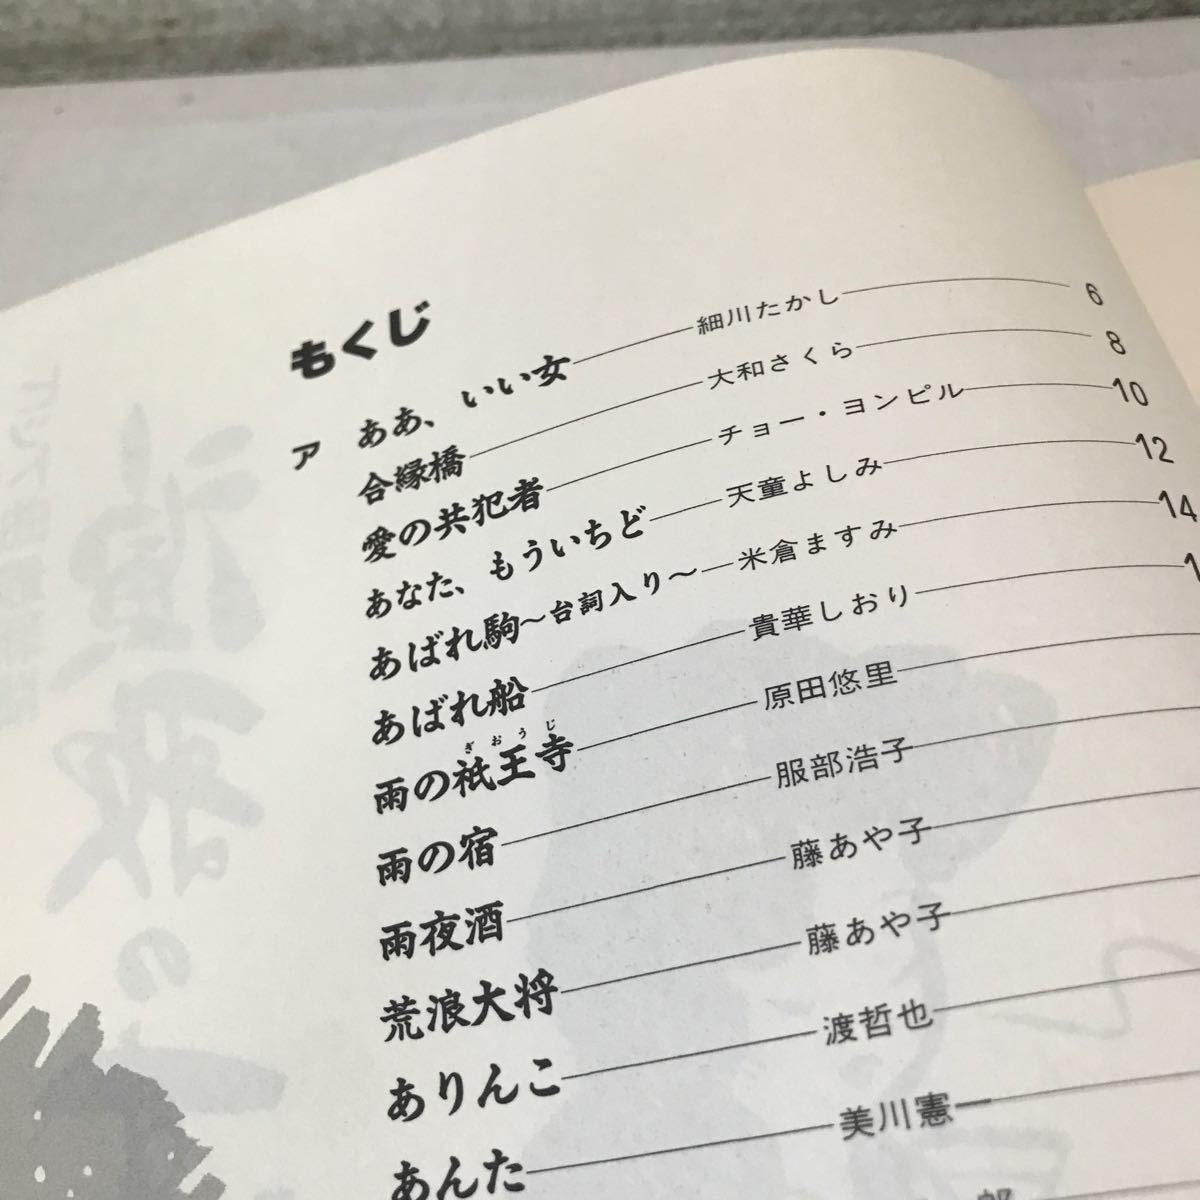 もくじ
ア ああ、いい女 細川たかし 6
合縁橋 大和さくら 8
愛の共犯者 チョー・ヨンピル 10
あなた、もういちど 天童よしみ 12
あばれ駒～台詞入り～ 米倉ますみ 14
あばれ船 貴華しおり 1
ぎおうじ
雨の祇王寺 原田悠里
雨の宿 服部浩子
雨夜酒 藤あや子
荒浪大将 藤あや子
ありんこ 渡哲也
あんた 美川憲一
郎